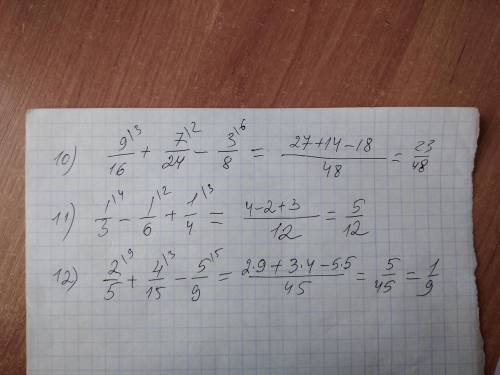 10) 9/16 \3 + 7/24 \2 - 3/8 \6 = (27+14-18)/48 = 23/48
11) 1/3 \4 - 1/6 \2 + 1/4 \3 = (4-2+3)/12 = 5/12
12) 2/5 \9 + 4/15 \3 - 5/9 \5 = (2·9+3·4-5·5)/45 = 5/45 = 1/9